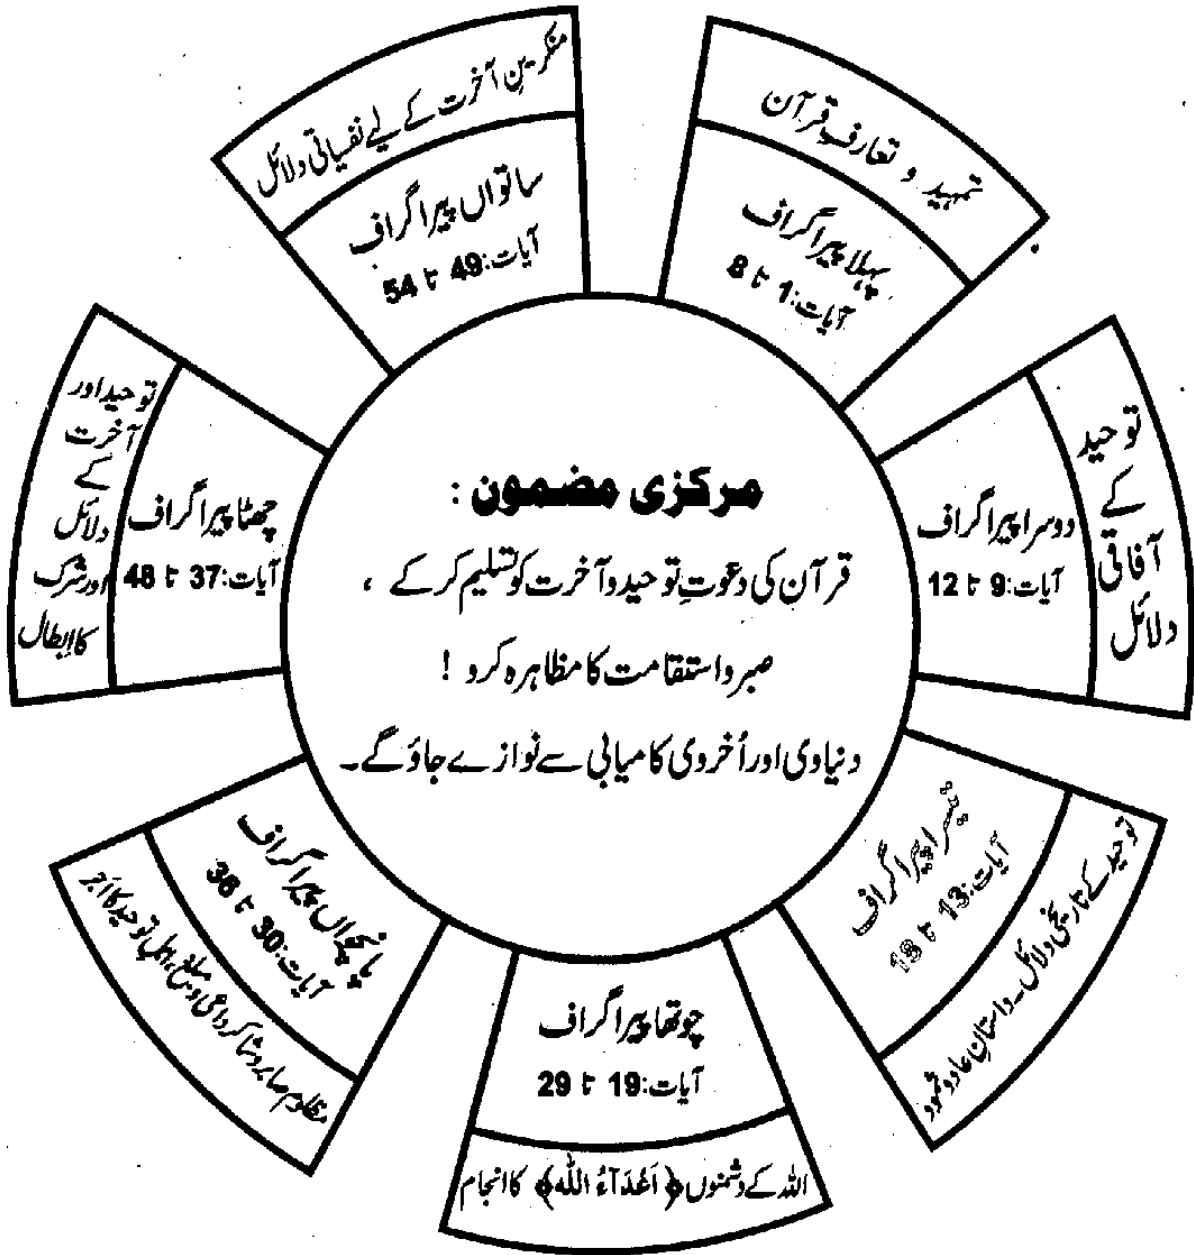 مرکزی مضمون :
قرآن کی دعوتِ توحید و آخرت کو تسلیم کر کے ،
صبر و استقامت کا مظاہرہ کرو !
دنیاوی اور اُخروی کامیابی سے نوازے جاؤ گے۔
تمہید و تعارفِ قرآن
پہلا پیراگراف
آیات:1 تا 8
توحید
کے
آفاقی
دلائل
دوسرا پیراگراف
آیات:9 تا 12
توحید کے تاریخی دلائل ۔ داستانِ عاد و ثمود
تیسرا پیراگراف
آیات:13 تا 18
چوتھا پیراگراف
آیات:19 تا 29
اللہ کے دشمنوں ﴿اَعْدَآءُ اللّٰه﴾ کا انجام
پانچواں پیراگراف
آیات:30 تا 36
مظلوم صابر و شاکر داعی و مبلغ، اہلِ توحید کا اَجر
توحید اور
آخرت
کے
دلائل
اور شرک
کا اِبطال
چھٹا پیراگراف
آیات:37 تا 48
منکرینِ آخرت کے لیے نفسیاتی دلائل
ساتواں پیراگراف
آیات:49 تا 54